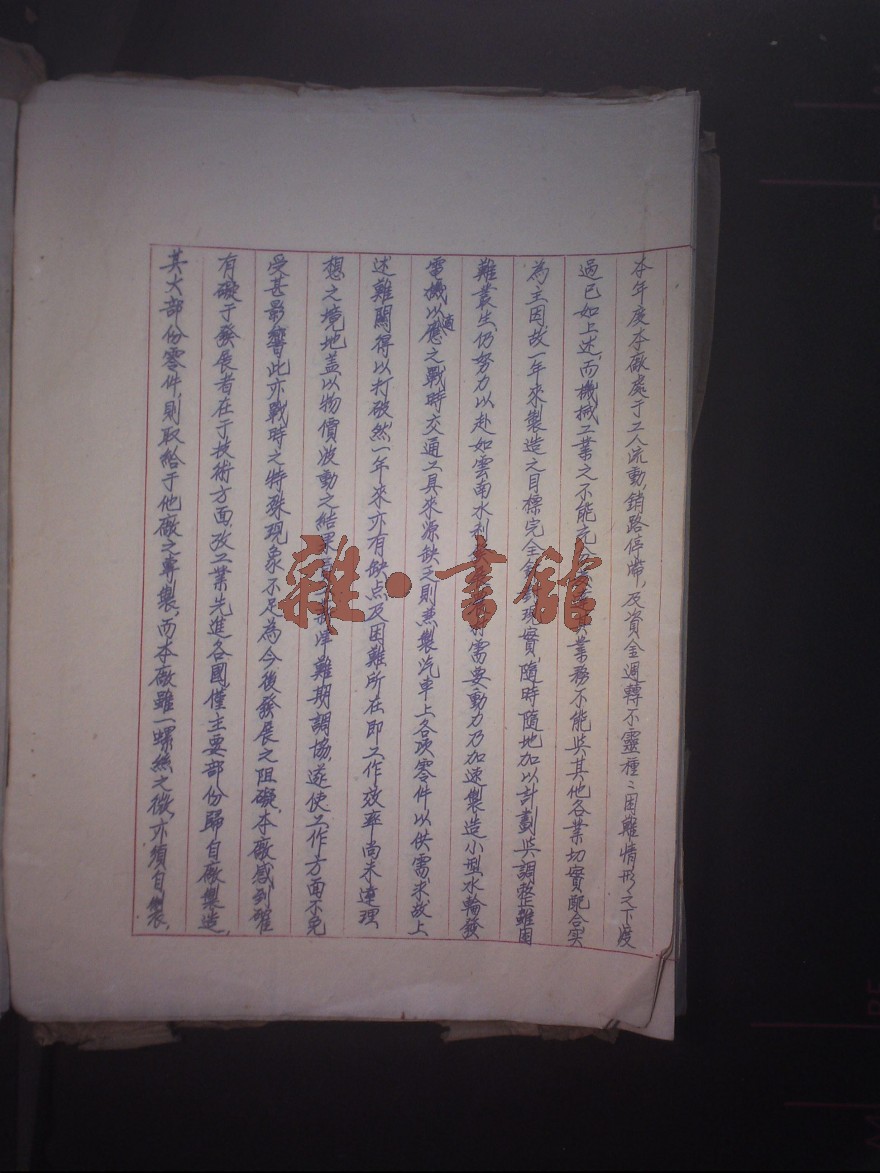 本年度本廠處于工人流動,銷路停滯,及資金週轉不靈種〻困難情形之下渡
過已如上述,而機械工業之不能完業務不能與其他各業切實配合实
為主因故一年來製造之目標完全現實,隨時隨地加以計劃與調整雖困
難叢生,仍努力以赴如雲南水利需要動力乃加速製造小型水輪發
電機以適應之戰時交通工具來源缺乏則兼製汽車上各項零件以供需求故上
述難關得以打破然一年來亦有缺点及困難所在即工作效率尚未達理
想之境地蓋以物價波動之結果難期調協,遂使工作方面不免
受甚影響此亦戰時之特殊現象不足為今後發展之阻礙,本廠感到確
有礙于發展者在于技術方面,攷工業先進各國僅主要部份歸自廠製造,
其大部份零件,則取給于他廠之專製,而本廠雖一螺絲之微,亦須自製,
雜·書館